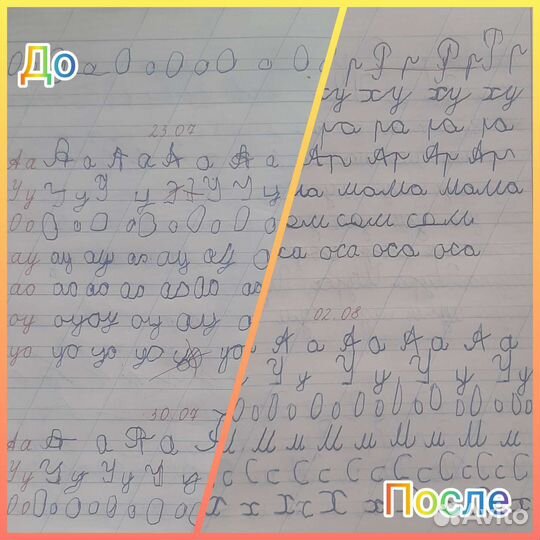 До
О о О о О о О о О
23.07
Аа А а А а А а А а
Уу У у У у У У у
Оо О о О о О о О о О
ау ау ау ао ау ау
ао ао ао ао ао ао ао
оу оу оу оу ау о
уо уо уо уо уо уо
30.07
Аа А а А а
Уу У у У у У у
р Р р Р р Р р
ху ху ху ху
ра ра ра ра
Ар Ар Ар Ар
ма мама мама
ом сом сом
оса оса оса оса
02.08
А а А а А а А а
У у У у У у У у
О о О о О о О о О о О о О о
М м М м М м М м
с С с С с С с С с С с С
Х х Х х Х х
После
Avito